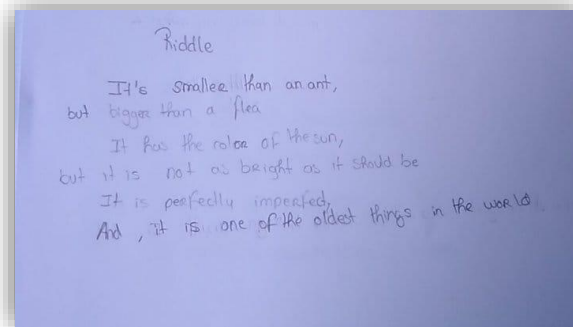 Riddle
It's smaller than an ant,
but bigger than a flea
It has the color of the sun,
but it is not as bright as it should be
It is perfectly imperfect,
And, it is one of the oldest things in the world